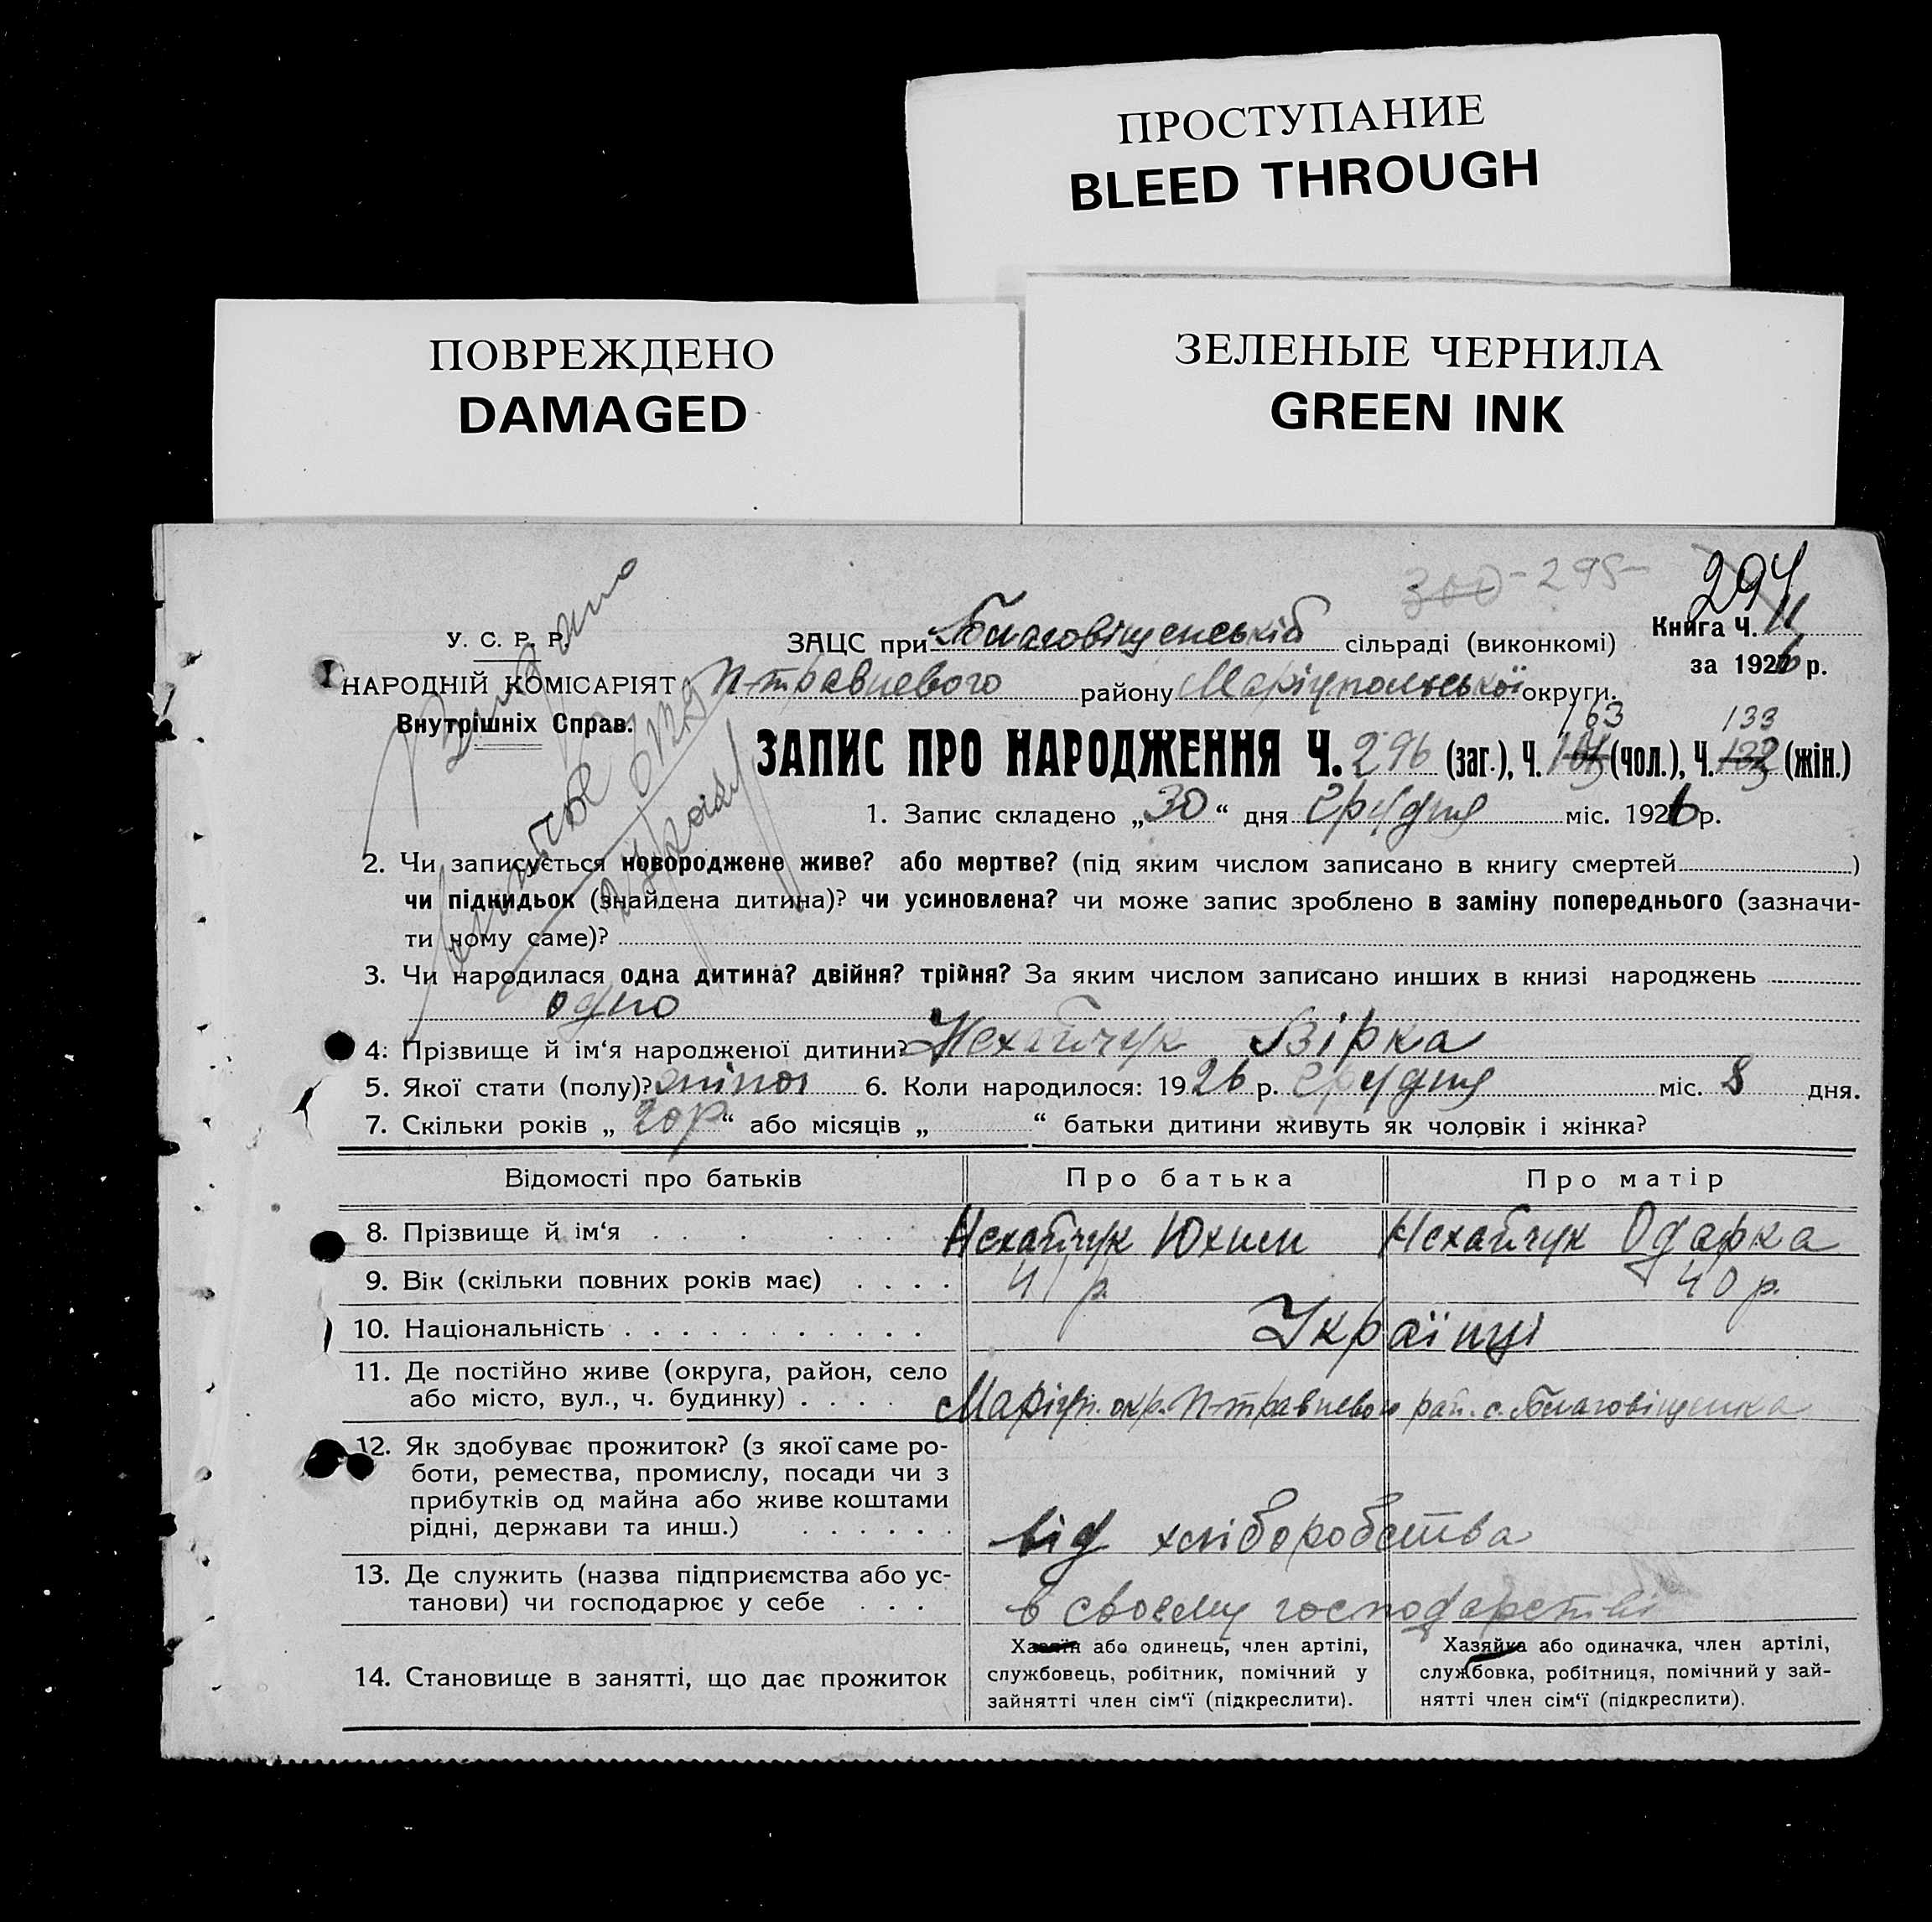 ПРОСТУПАНИЕ
BLEED THROUGH
ПОВРЕЖДЕНО
DAMAGED
ЗЕЛЕНЫЕ ЧЕРНИЛА
GREEN INK
300 - 295
294
У. С. Р. Р.
НАРОДНІЙ КОМІСАРІЯТ
Внутрішніх Справ.
ЗАЦС при Благовіщенській сільраді (виконкомі)
Книга Ч. 11
за 1926 р.
П-травневого району Маріупольської округи.
163 133
ЗАПИС ПРО НАРОДЖЕННЯ Ч. 296 (заг.), Ч. (чол.), Ч. 132 (жін.)
1. Запис складено „30“ дня Грудня міс. 1926 р.
2. Чи записується новороджене живе? або мертве? (під яким числом записано в книгу смертей )
чи підкидьок (знайдена дитина)? чи усиновлена? чи може запис зроблено в заміну попереднього (зазначи-
ти чому саме)?
3. Чи народилася одна дитина? двійня? трійня? За яким числом записано инших в книзі народжень
одно
4. Прізвище й ім‘я народженої дитини? Нехайчук Вірка
5. Якої стати (полу)? жіночої 6. Коли народилося: 1926 р. Грудня міс. 8 дня.
7. Скільки років „20р“ або місяців „ “ батьки дитини живуть як чоловік і жінка?
Відомості про батьків Про батька Про матір
8. Прізвище й ім‘я Нехайчук Юхим Нехайчук Одарка
9. Вік (скільки повних років має) 41 р. 40 р.
10. Національність Українці
11. Де постійно живе (округа, район, село
або місто, вул., ч. будинку) Маріуп. окр. П-травневого рай. с. Благовіщенка
12. Як здобуває прожиток? (з якої саме ро-
боти, ремества, промислу, посади чи з
прибутків од майна або живе коштами
рідні, держави та инш.) від хліборобства
13. Де служить (назва підприємства або ус-
танови) чи господарює у себе в своєму господарстві
14. Становище в занятті, що дає прожиток
Хазяїн або одинець, член артілі,
службовець, робітник, помічний у
зайнятті член сім‘ї (підкреслити).
Хазяйка або одиначка, член артілі,
службовка, робітниця, помічний у зай-
нятті член сім‘ї (підкреслити).